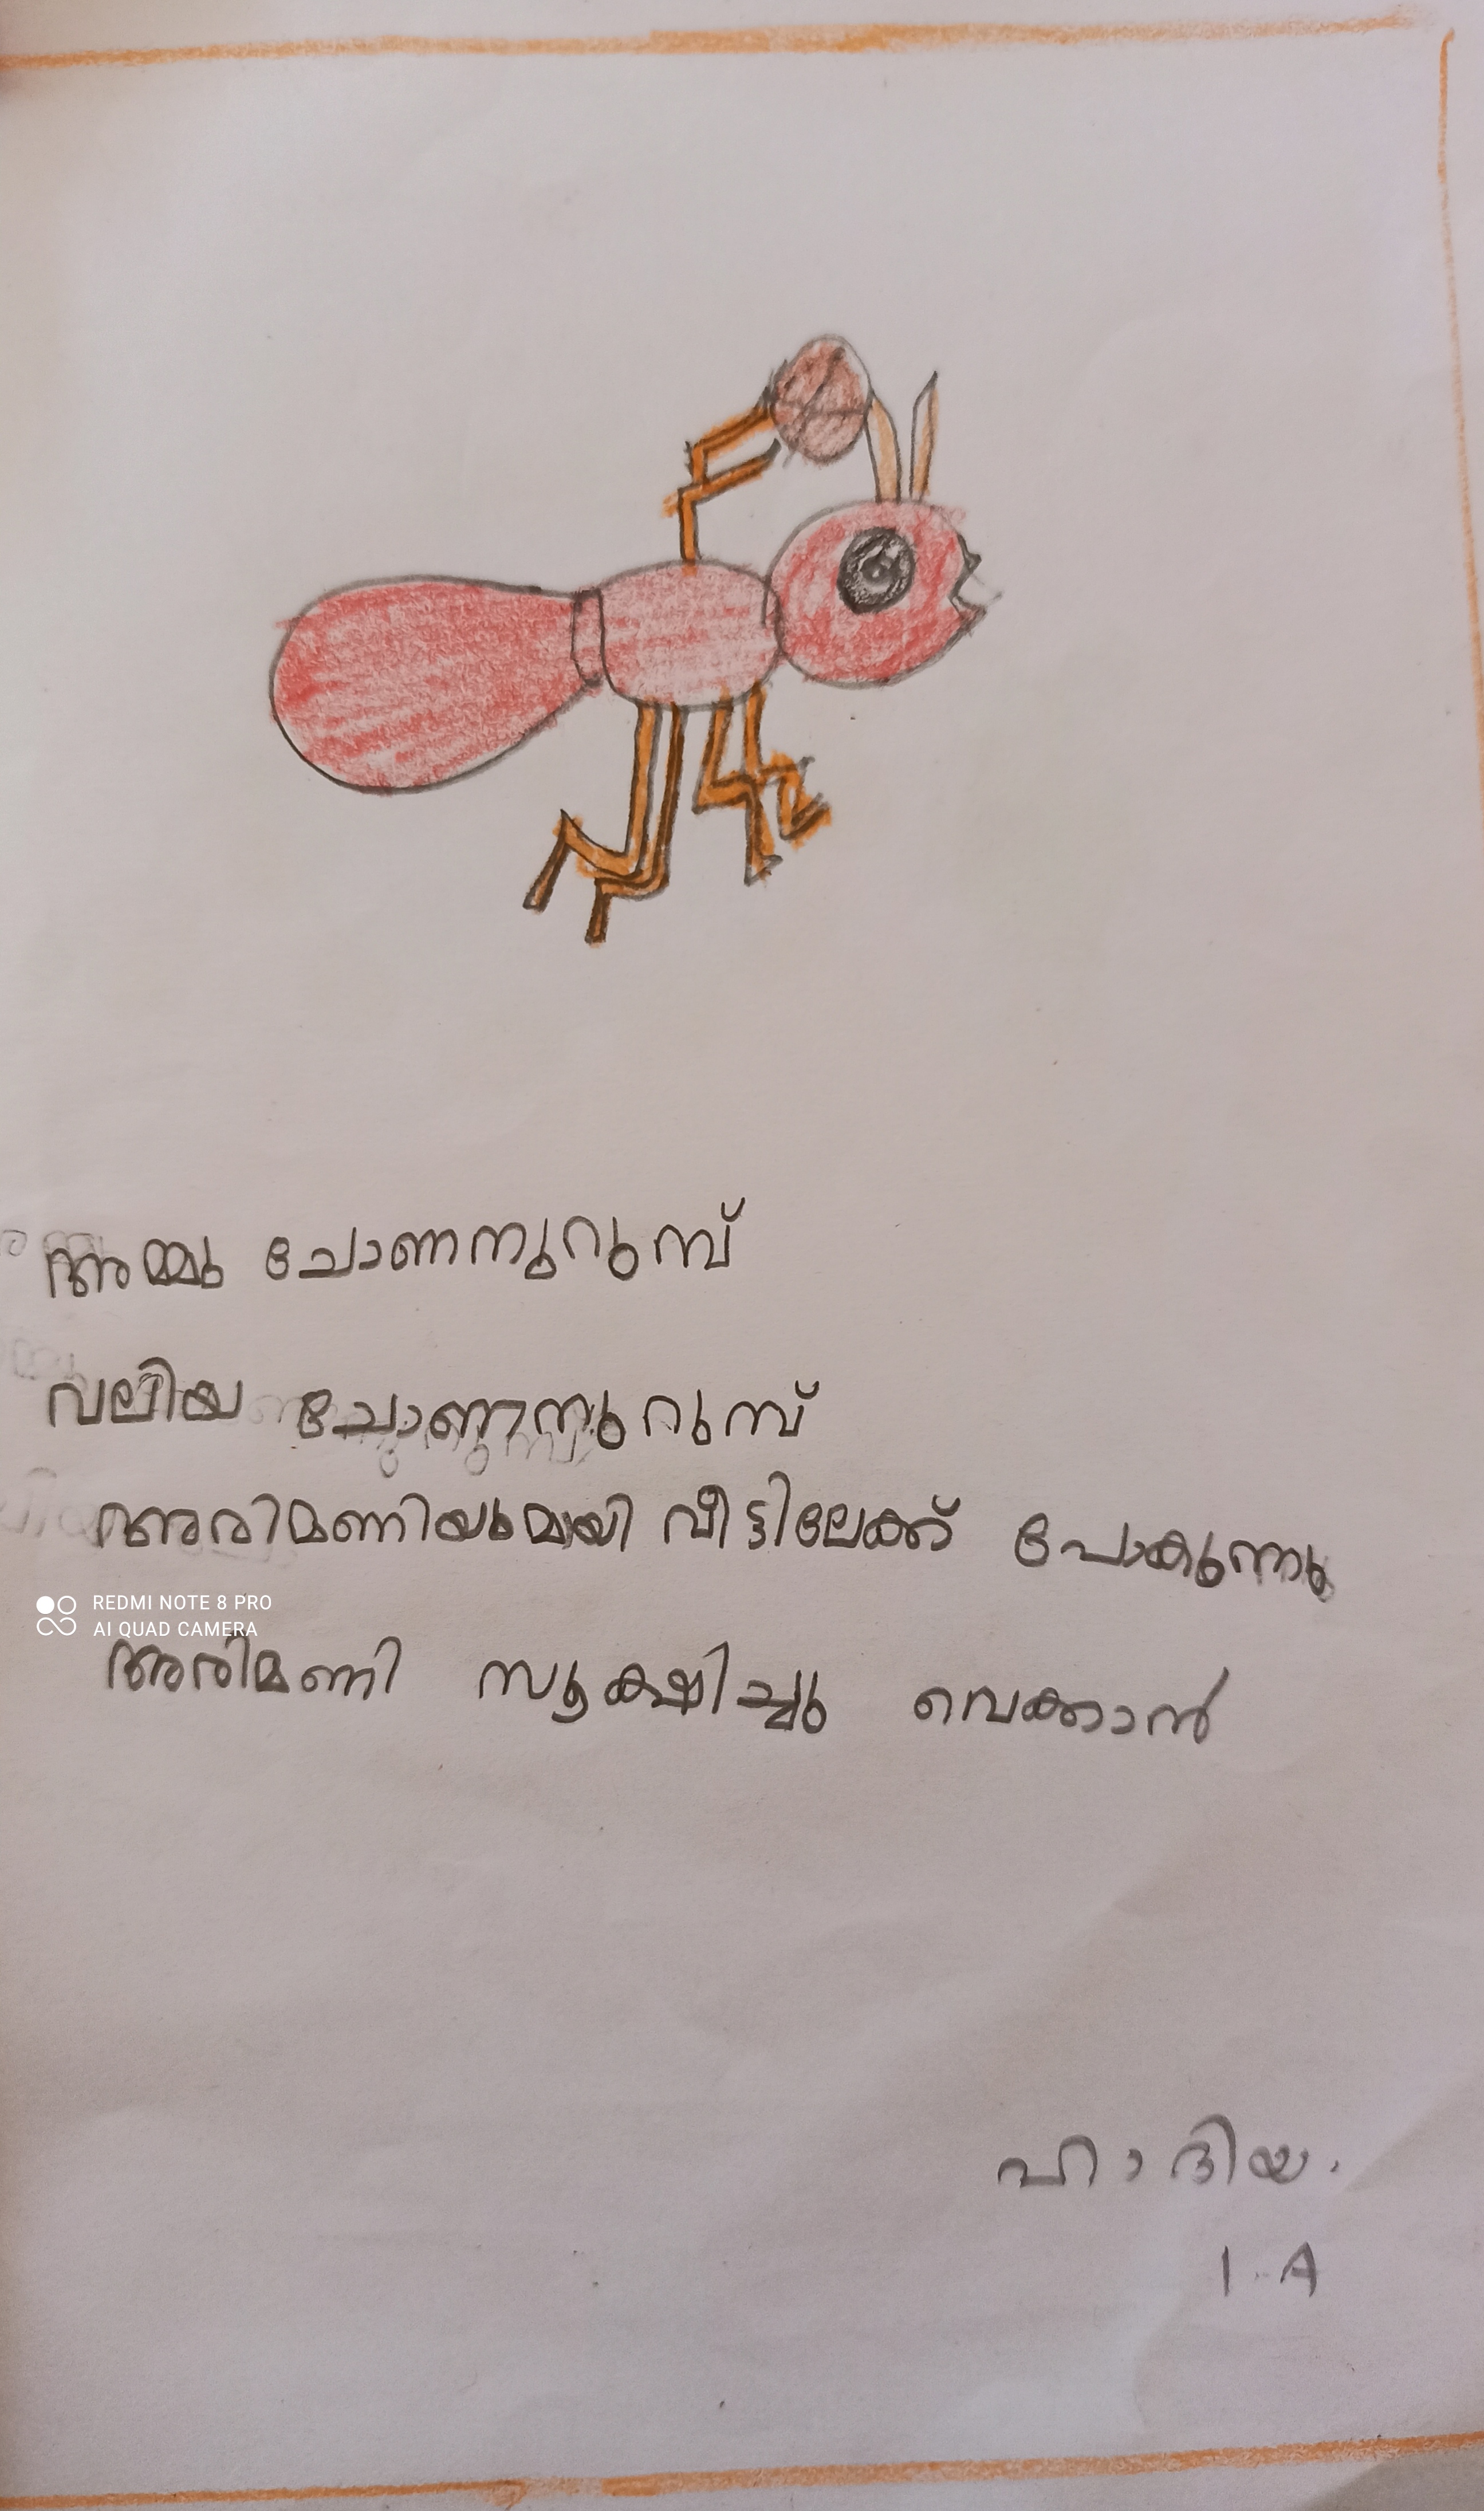 അമ്മു ചോണനുറുമ്പ്
വലിയ ചോണനുറുമ്പ്
അരിമണിയുമായി വീട്ടിലേക്ക് പോകുന്നു
REDMI NOTE 8 PRO
AI QUAD CAMERA
അരിമണി സൂക്ഷിച്ചു വെക്കാൻ
ഹാദിയ.
1.A